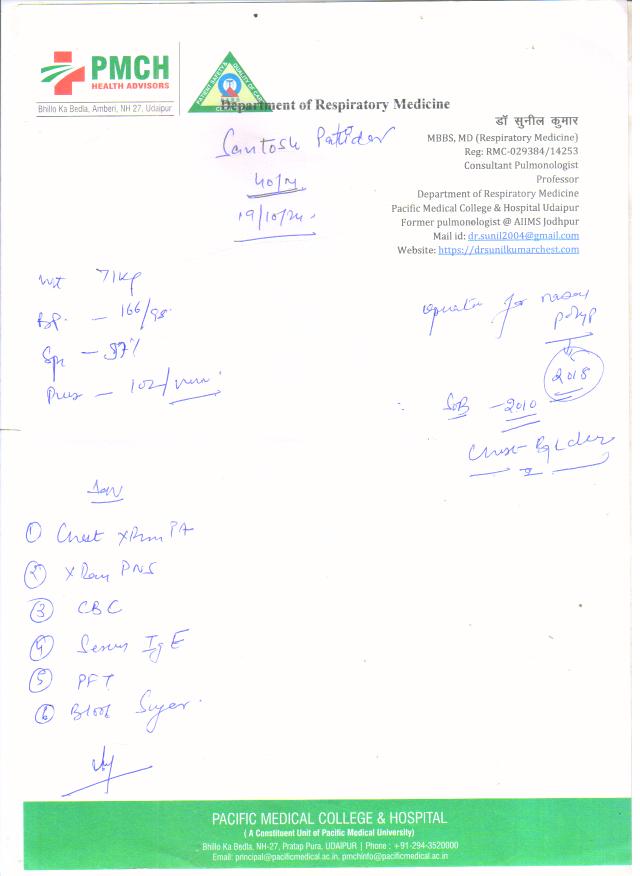 PMCH
HEALTH ADVISORS
Bhillo Ka Bedla, Amberi, NH 27, Udaipur
PATIENT SAFETY & QUALITY OF CARE
Department of Respiratory Medicine
डॉ सुनील कुमार
MBBS, MD (Respiratory Medicine)
Reg: RMC-029384/14253
Consultant Pulmonologist
Professor
Department of Respiratory Medicine
Pacific Medical College & Hospital Udaipur
Former pulmonologist @ AIIMS Jodhpur
Mail id: dr.sunil2004@gmail.com
Website: https://drsunilkumarchest.com
Santosh Patidar
40/M
19/10/24
Wt 71Kg
BP. — 166/98
— 97%
— 102/min
for nasal
polyp
2018
SOB — 2010
Chest
① Chest XRay PA
② XRay PNS
③ CBC
④ Serum IgE
⑤ PFT
⑥ Blood Suger
PACIFIC MEDICAL COLLEGE & HOSPITAL
( A Constituent Unit of Pacific Medical University)
Bhillo Ka Bedla, NH-27, Pratap Pura, UDAIPUR | Phone : +91-294-3520000
Email: principal@pacificmedical.ac.in, pmchinfo@pacificmedical.ac.in